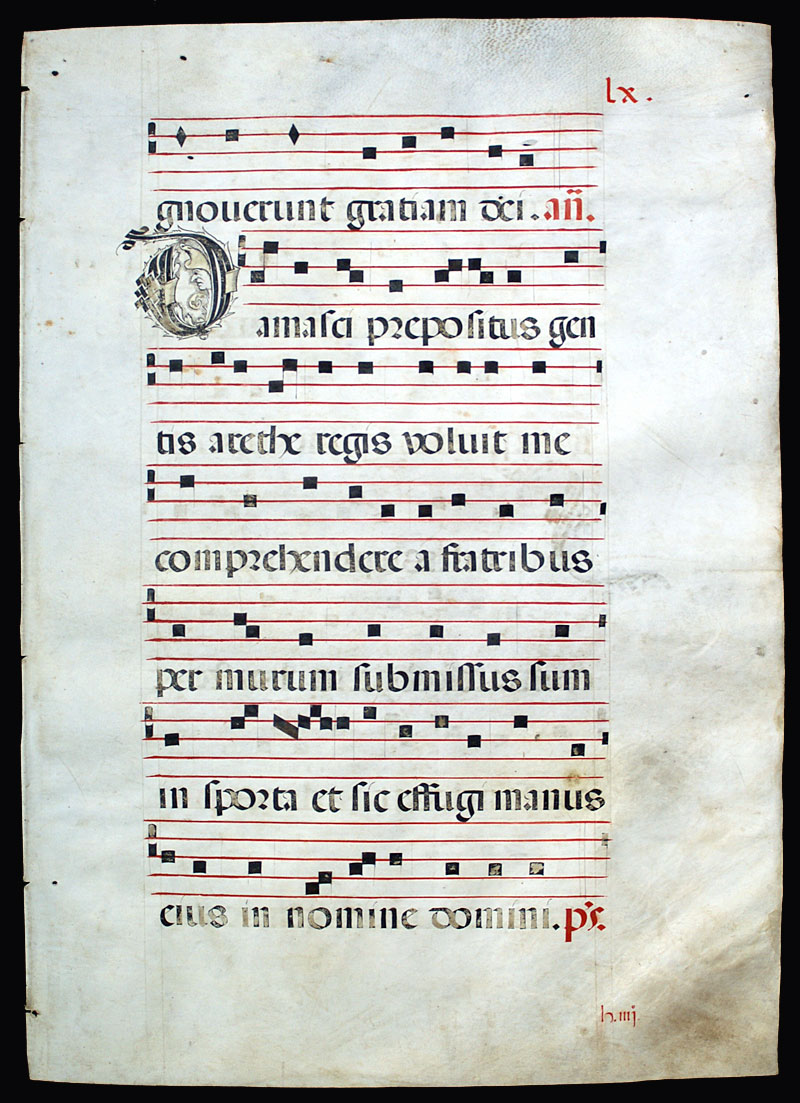 lx.
gnouerunt gratiam dei. an̄.
Damasci prepositus gen
tis arethe regis voluit me
comprehendere a fratribus
per murum submissus sum
in sporta et sic effugi manus
eius in nomine domini. ps.
h.iiij